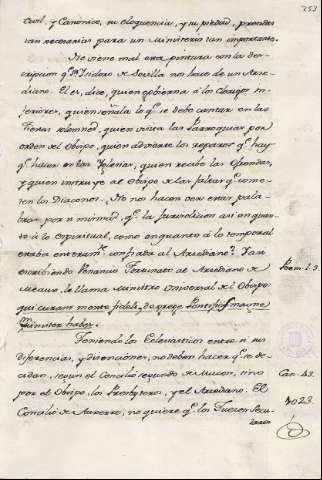 253
Civil, y Canonico, su eloquencia, y su piedad, prendas
tan necesarias para un Ministerio tan importante.
No viene mal esta pintura con la des-
cripcion q.e Sn Isidoro de Sevilla nos hace de un Arce-
diano. El es, dice, quien gobierna á los Clerigos in-
feriores, quien señala lo q.e se debe cantar en las
Fiestas solemnes, quien visita las Parroquias por
orden del Obispo, quien advierte los reparos q.e hay
q.e hacer en las Yglesias, quien recibe las Ofrendas,
y quien instruye al Obispo de las faltas q.e come-
ten los Diaconos. No nos hacen ver estas pala-
bras por si mismas, q.e la Jurisdiccion asi en quan-
to á lo espiritual, como en quanto á lo temporal
estaba enteram.te confiada al Arcediano?
escribiendo Venancio Fortunato al Arcediano de
Meaux, le llama Ministro Universal del Obispo
qui curam mente fideli, de grege Pontificis magne
minister habes.
Poem. l. 3.
Teniendo los Eclesiasticos entre si sus
diferencias, y disenciones, no deben hacer q.e se de-
cidan, segun el Concilio segundo de Macon, sino
por el Obispo, los Presbyteros, y el Arcediano. El
Concilio de Auxerre, no quiere q.e los Jueces Secu-
lares
Can. 43.